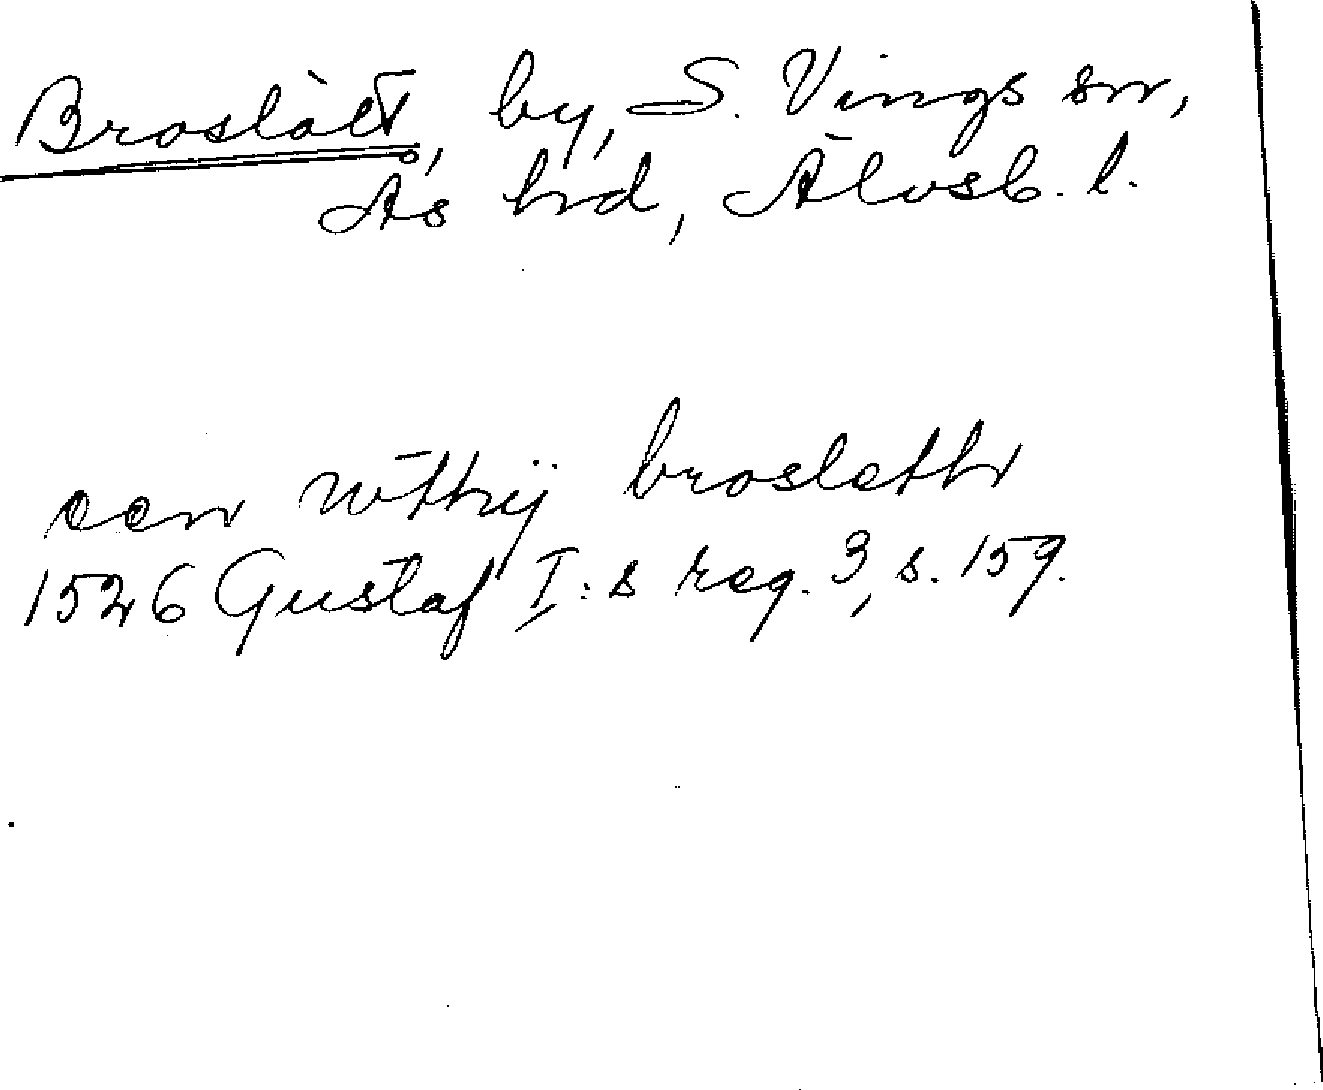 Broslätt, by, S. Vings sn,
Ås hd, Älvsb. l.
een wthij broslethr
1526 Gustaf I:s reg. 3, s. 159.